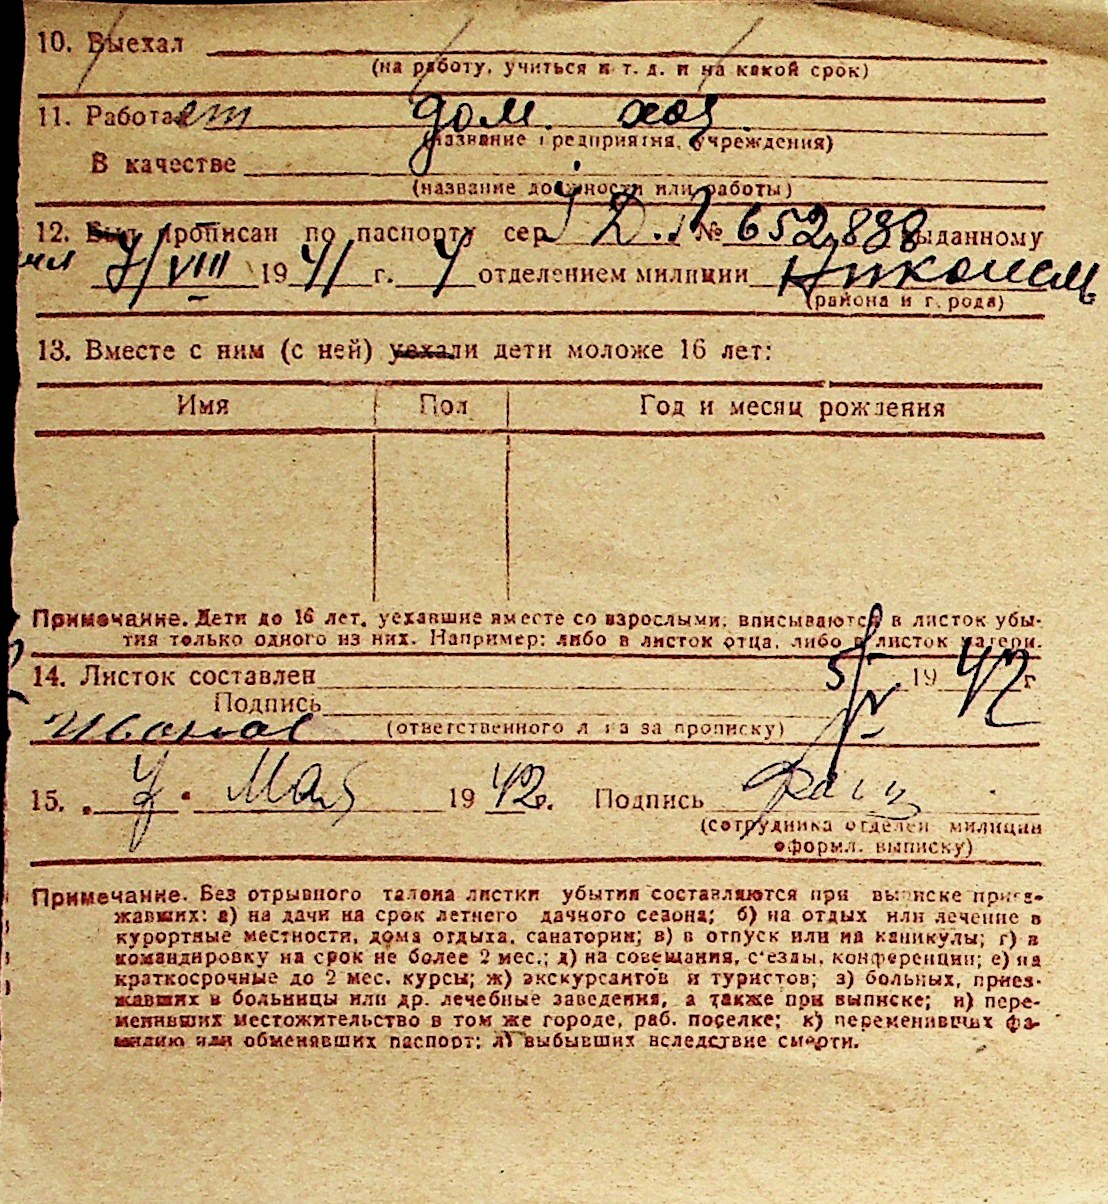 10. Выехал
(на работу, учиться и т. д. и на какой срок)
11. Работает дом. хоз.
(название предприятия, учреждения)
В качестве
(название должности или работы)
12. Был прописан по паспорту сер. № 652888 выданному
7/VIII 1941 г. 4 отделением милиции
(района и города)
13. Вместе с ним (с ней) уехали дети моложе 16 лет:
Имя Пол Год и месяц рождения
Примечание. Дети до 16 лет, уехавшие вместе со взрослыми, вписываются в листок убы-
тия только одного из них. Например: либо в листок отца, либо в листок матери.
14. Листок составлен 5/V 1942 г
Подпись
(ответственного лица за прописку)
15. „7" Мая 1942г. Подпись
(сотрудника отделен милиции
оформл. выписку)
Примечание. Без отрывного талона листки убытия составляются при выписке приез-
жавших: а) на дачи на срок летнего дачного сезона; б) на отдых или лечение в
курортные местности, дома отдыха, санатории; в) в отпуск или на каникулы; г) в
командировку на срок не более 2 мес.; д) на совещания, с'езды, конференции; е) на
краткосрочные до 2 мес. курсы; ж) экскурсантов и туристов; з) больных, приез-
жавших в больницы или др. лечебные заведения, а также при выписке; и) пере-
менивших местожительство в том же городе, раб. поселке; к) переменивших фа-
милию или обменявших паспорт; л) выбывших вследствие смерти.